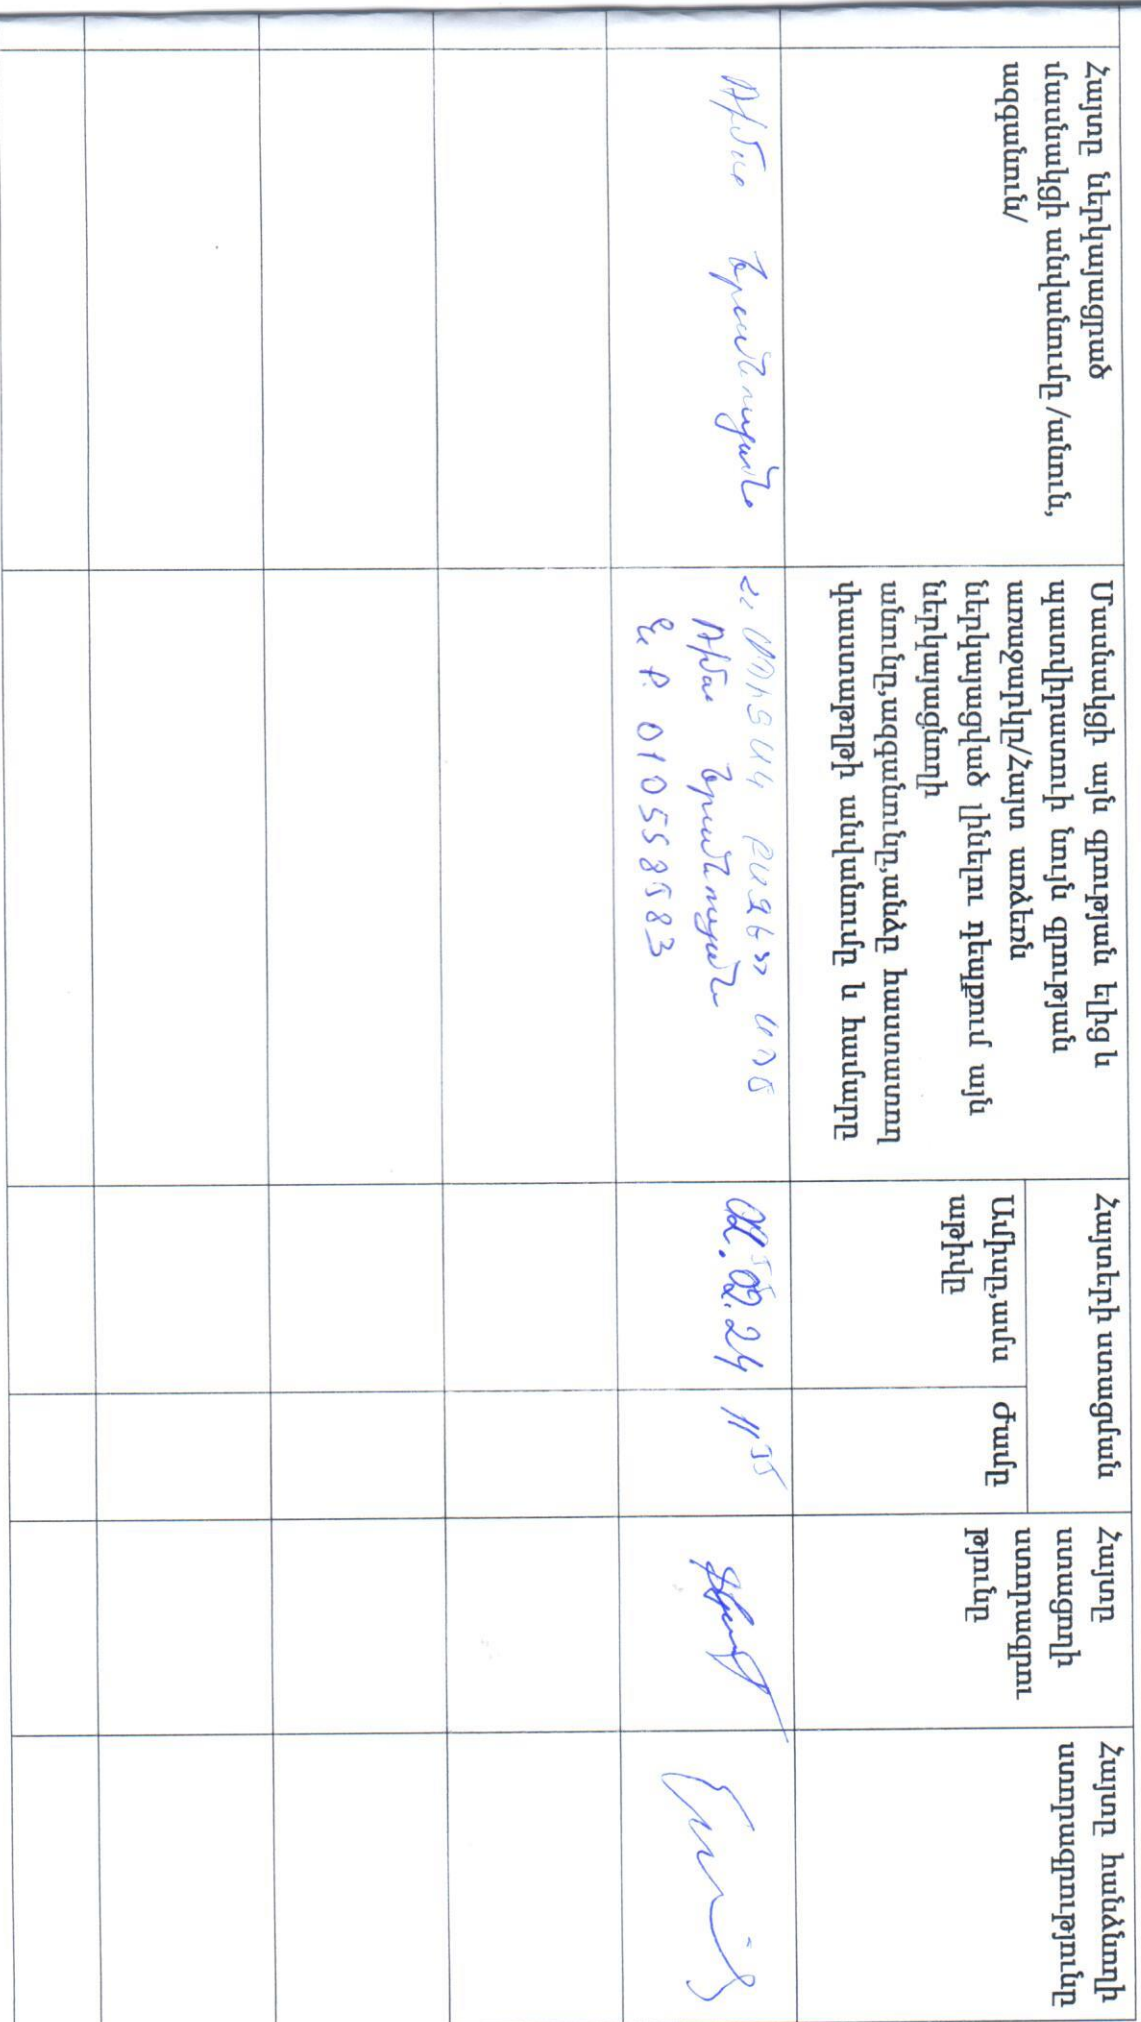 Հայտը ներկայացրած
մասնակիցի անվանումը/անուն,
ազգանուն/
Մասնակցի այն գրության ելից և
պատվիրատուի նույն գրության
առաջարկը/Հայտ առձեռն
ներկայացված լինելու դեպքում այն
ներկայացնողի
անունը,ազգանունը,անձը հաստատող
փաստաթղթի անվանումը և համարը
Հայտերի ստացման
Ամիսը,ամսա
աթիվը
Ժամը
Հայտը
ստացողի
ստորագրու
թյունը
Հայտը հանձնողի
ստորագրությունը
Երանոսյան
Երանոսյան
010558583
02.24
11 55